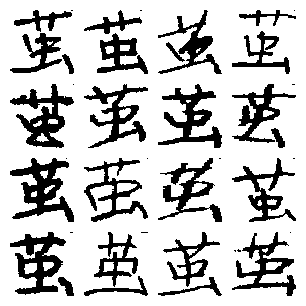 茧茧茧茧
茧茧茧茧
茧茧茧茧
茧茧茧茧